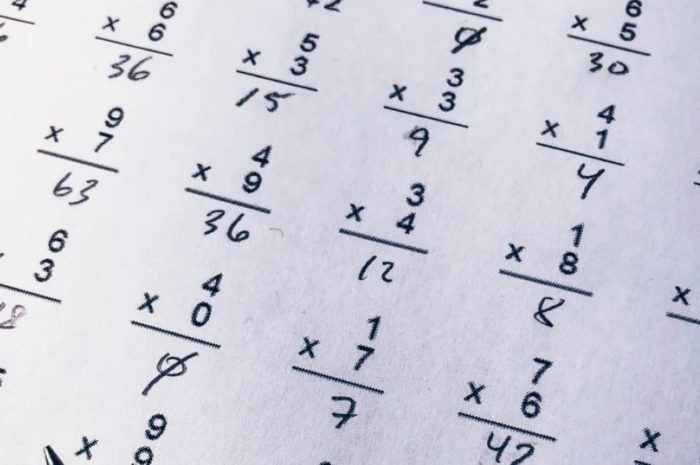 6
× 5
30
6
× 6
36
5
× 3
15
3
× 3
9
4
× 1
4
9
× 7
63
4
× 9
36
3
× 4
12
1
× 8
8
×
6
3
18
4
× 0
0
1
× 7
7
7
× 6
42
×
9
× 9